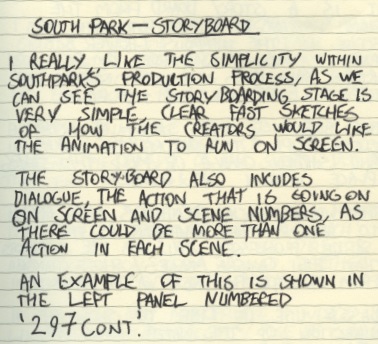 SOUTH PARK — STORYBOARD
I REALLY, LIKE THE SIMPLICITY WITHIN
SOUTHPARKS PRODUCTION PROCESS, AS WE
CAN SEE THE STORYBOARDING STAGE IS
VERY SIMPLE, CLEAR FAST SKETCHES
OF HOW THE CREATORS WOULD LIKE
THE ANIMATION TO RUN ON SCREEN.
THE STORY-BOARD ALSO INCUDES
DIALOGUE, THE ACTION THAT IS GOING ON
ON SCREEN AND SCENE NUMBERS, AS
THERE COULD BE MORE THAN ONE
ACTION IN EACH SCENE.
AN EXAMPLE OF THIS IS SHOWN IN
THE LEFT PANEL NUMBERED
'297 CONT.'